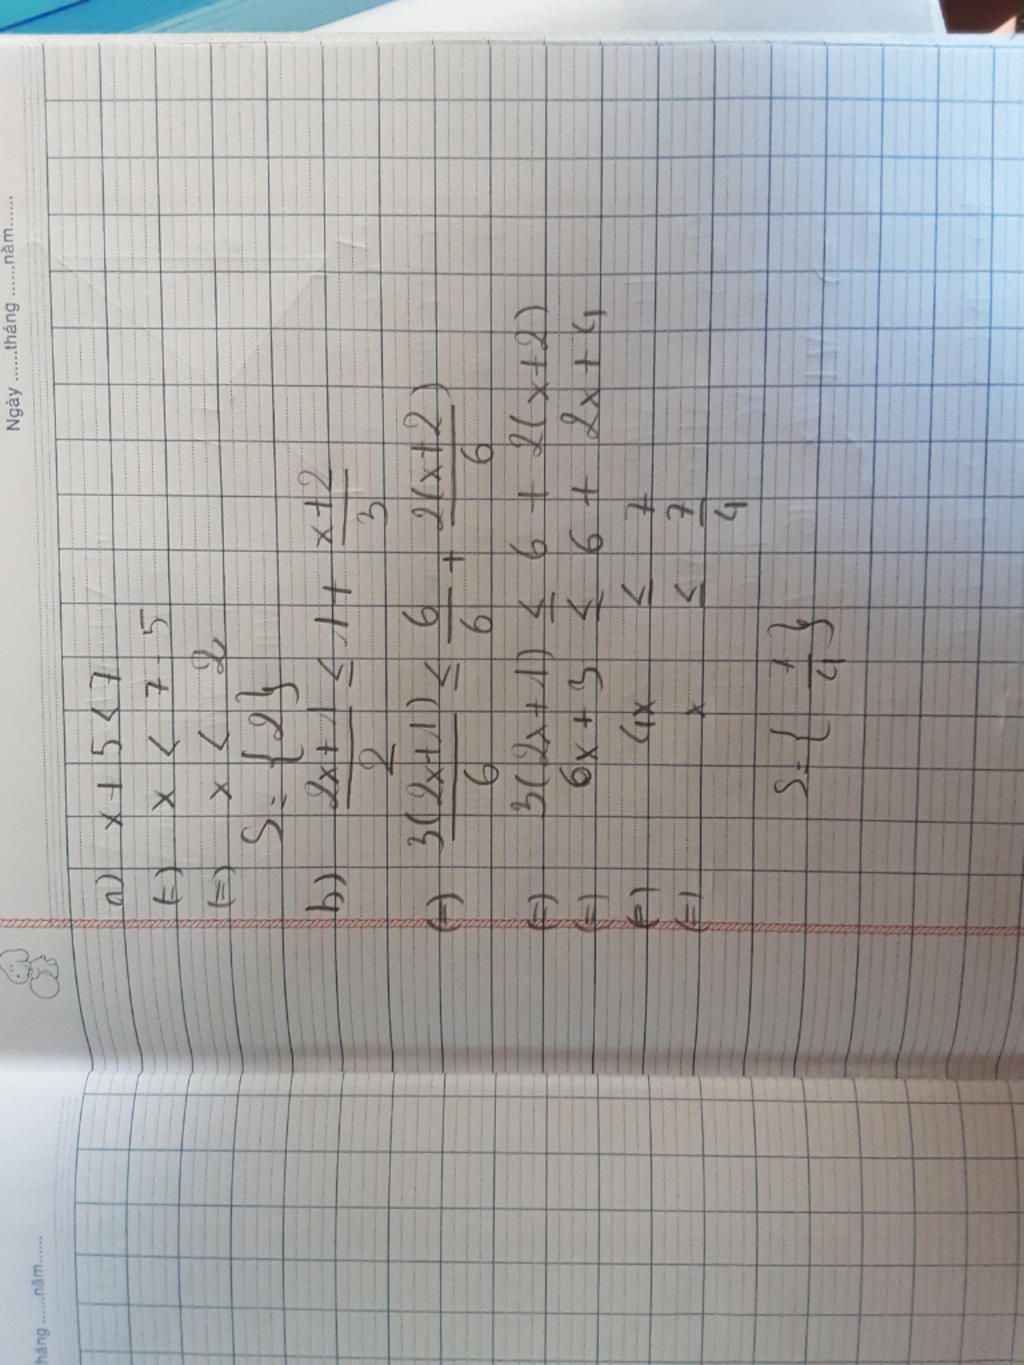 Ngày ......tháng ......năm......
a) x + 5 < 7
(=) x < 7 - 5
(=) x < 2
S = { 2 }
b) (2x + 1)/2 ≤ 1 + (x + 2)/3
(=) 3(2x + 1)/6 ≤ 6/6 + 2(x + 2)/6
(=) 3(2x + 1) ≤ 6 + 2(x + 2)
(=) 6x + 3 ≤ 6 + 2x + 4
(=) 4x ≤ 7
(=) x ≤ 7/4
S = { 7/4 }
háng ......năm......